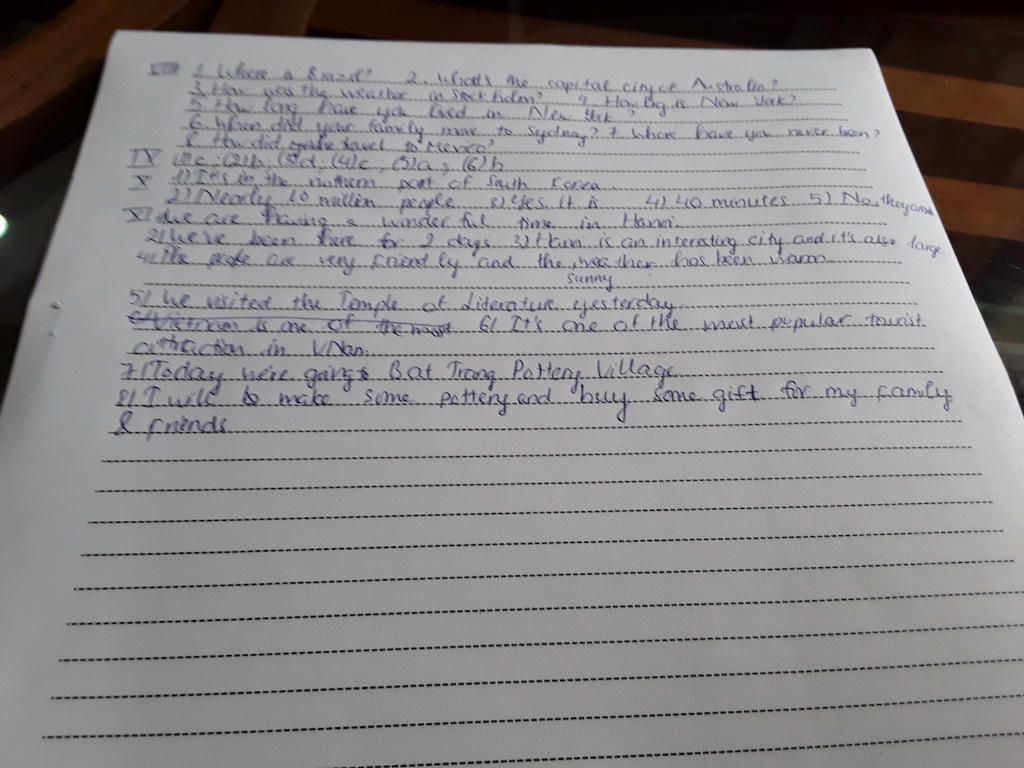 VIII 1. Where is Brazil? 2. What's the capital city of Australia?
3. How was the weather in Stockholm? 4. How big is New York?
5. How long have you lived in New York?
6. When did your family move to Sydney? 7. Where have you never been?
8. How did travel to Mexico?
IX (1) c; (2) b; (3) d; (4) c; (5) a; (6) b
X 1) It's in the northern part of South Korea
2) Nearly 10 million people 3) Yes, it is 4) 40 minutes 5) No, they aren't
XI 1) We are having a wonderful time in Hanoi.
2) We've been here for 2 days 3) Hanoi is an interesting city and it's also large.
4) The people are very friendly and the weather has been warm
sunny
5) We visited the Temple of Literature yesterday
6) Vietnam is one of the most 6) It's one of the most popular tourist
attraction in VNam.
7) Today we're going to Bat Trang Pottery Village
8) I will be make some pottery and buy some gift for my family
& friends